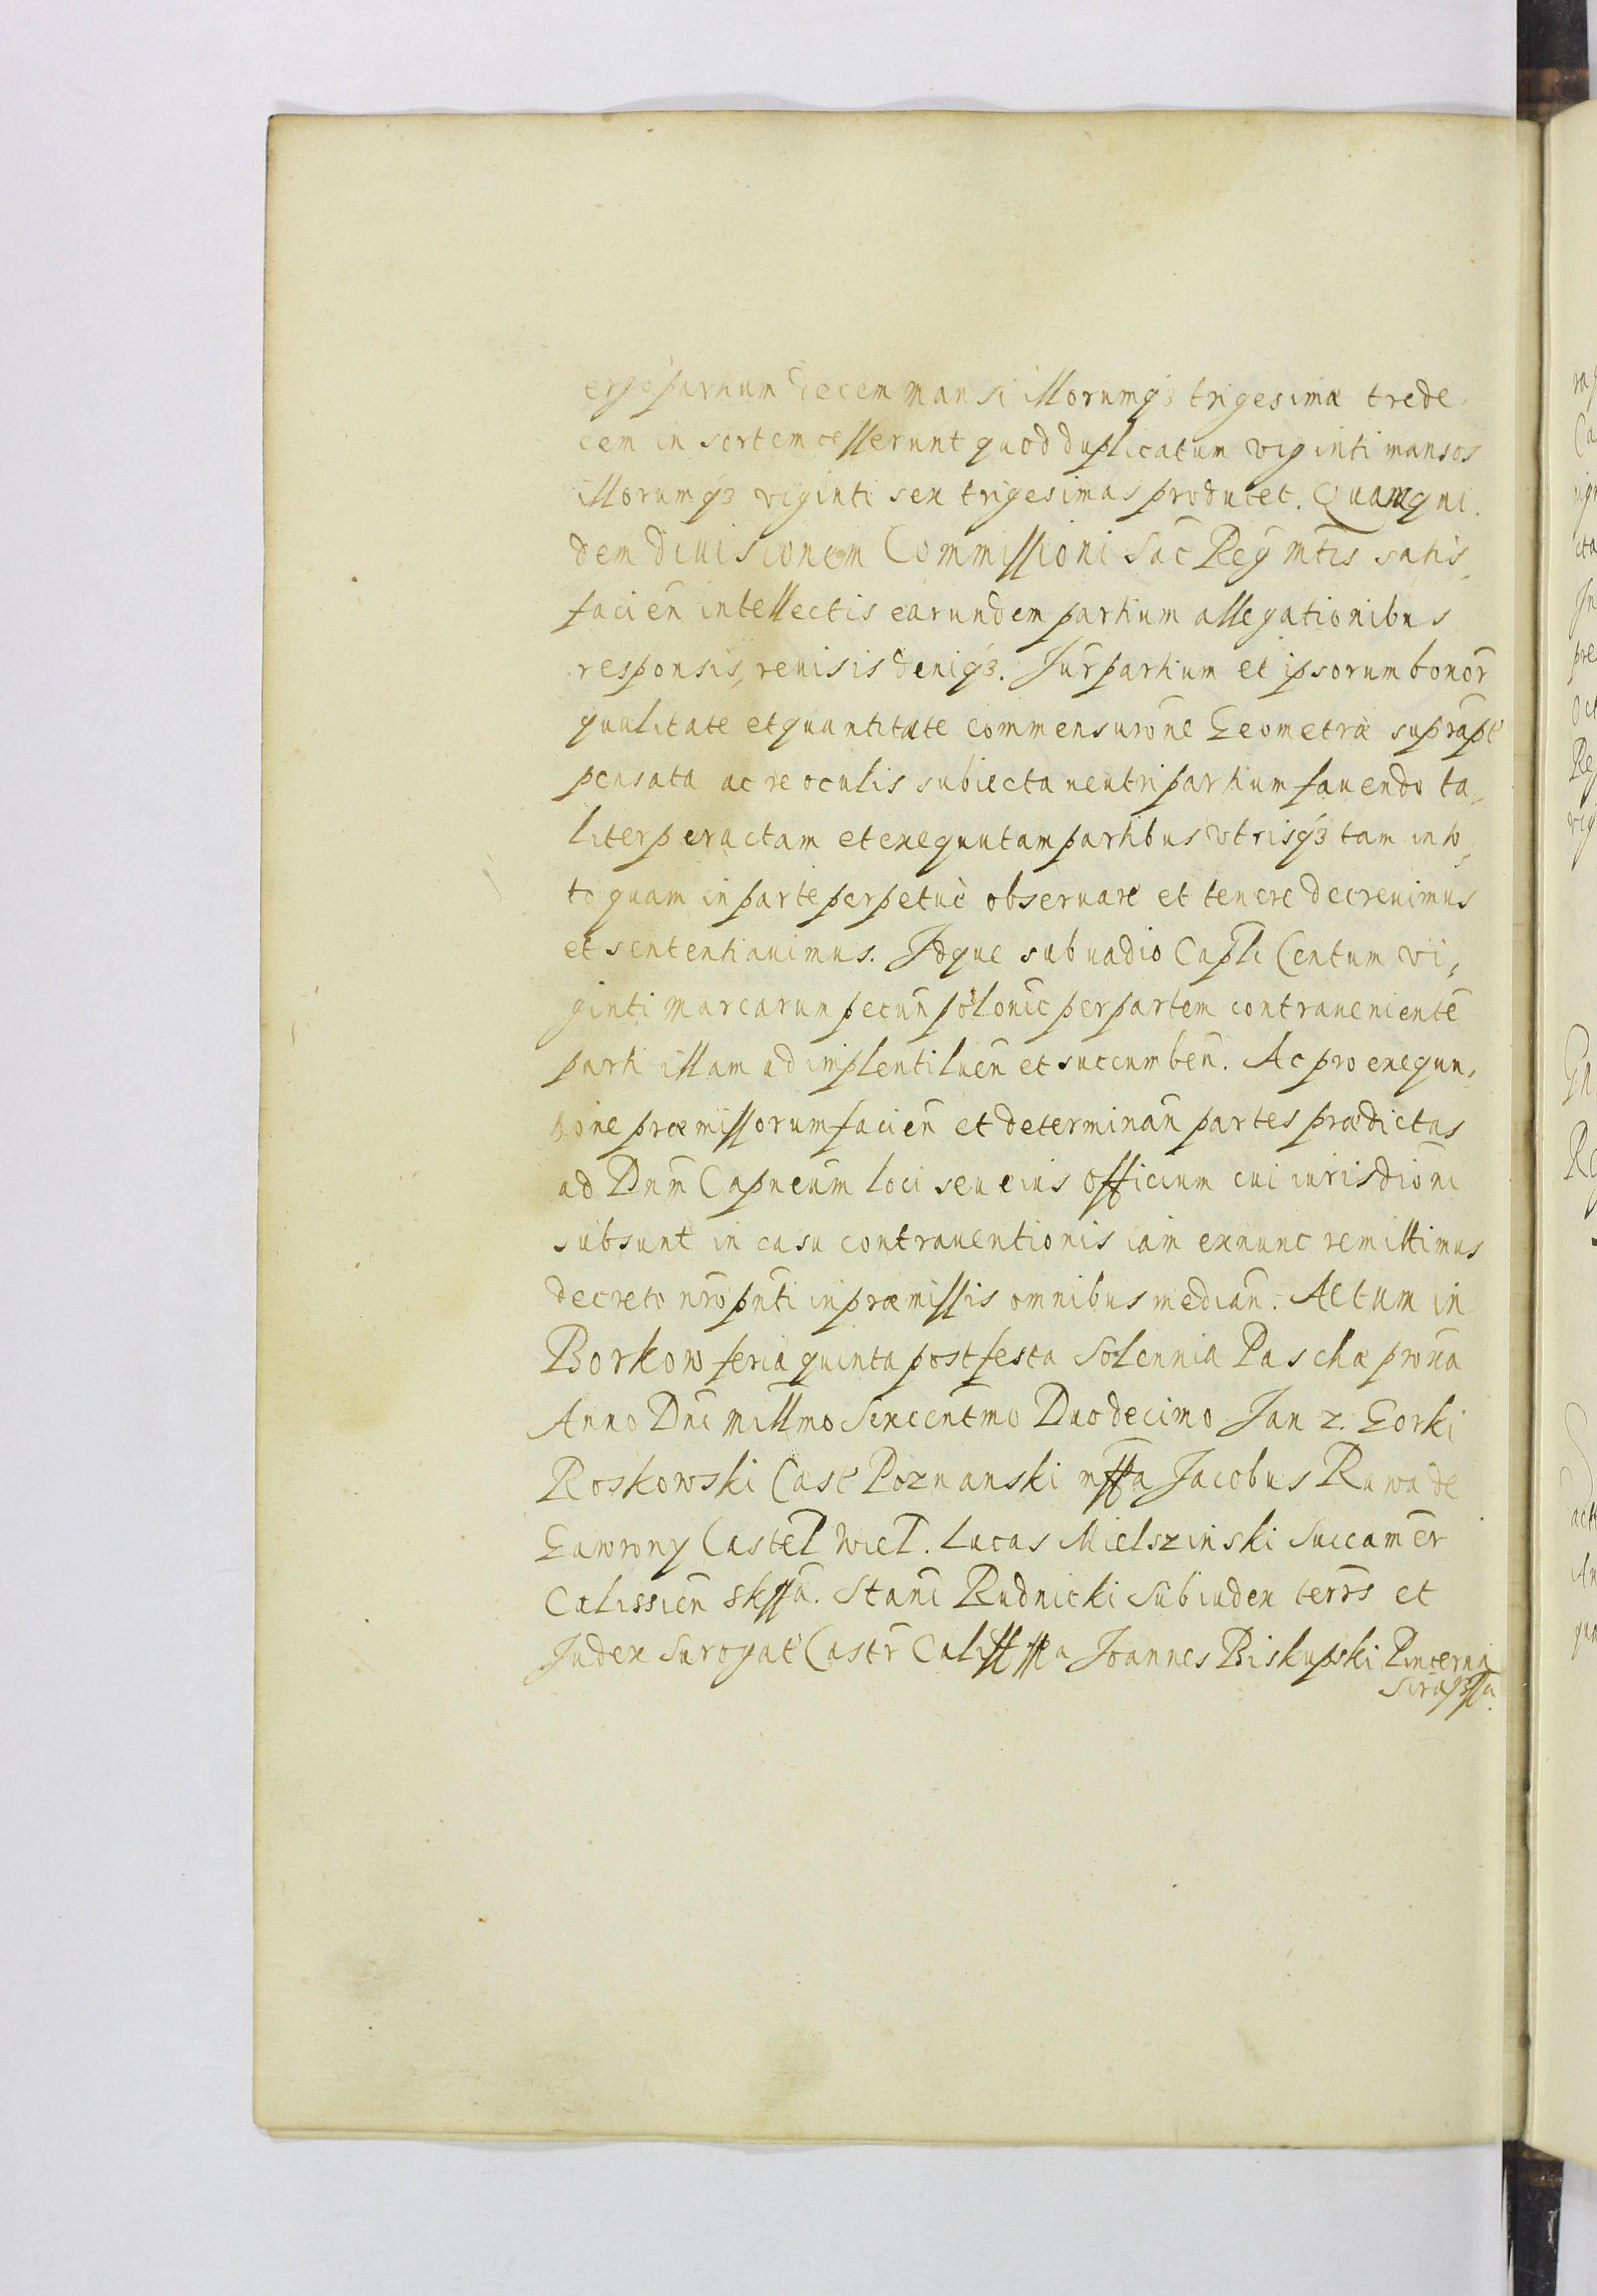 ergo partium decem mansi illorumq3 trigesimæ trede
cem in sortem cesserunt quod duplicatum viginti mansos
illorumq3 viginti sex trigesimas producet. Quamqui
dem diuisionem Commissioni Sac̃ Reg̃ Mt̃is satis
facien̄ intellectis earundem partium allegationibus
responsis, reuisis deniq3. Jur̃ partium et ipsorum bonor̃
qualitate et quantitate commensurõne Geometræ supra
pensata ac re oculis subiecta neutri partium fauendo ta,
liter peractam et exequutam partibus vtrisq3 tam in to,
to quam in parte perpetuè obseruare et tenere decreuimus
et sententiauimus. Idque sub uadio Capl̃i Centum vi,
ginti marcarum pecun̄ polonic̄ per partem contrauenientē
parti illam adimplenti luen̄ et succumben̄. Ac pro exequu,
tione præmissorum facien̄ et determinan̄ partes prædictas
ad Dnm̄ Capneum̄ loci seu eius officium cui iurisdiõni
subsunt in casu contrauentionis iam exnunc remittimus
decreto nr̃o pn̄ti in præmissis omnibus median̄. Actum in
Borkow feria quinta post festa Solennia Paschæ prox̄a
Anno Dn̄i millmo Sexcentmo Duodecimo Jan z Gorki
Roskowski Cast Poznanski mppa Jacobus Rawa de
Gawrony Castel̄ Wiel̄. Lucas Mielszinski Succamer̄
Calissien̄ skssā. Stanī Rudnicki Subiudex terrīs et
Judex Surogat Castr̄ Calissz mppa Joannes Biskupski Pincerna
Sirad